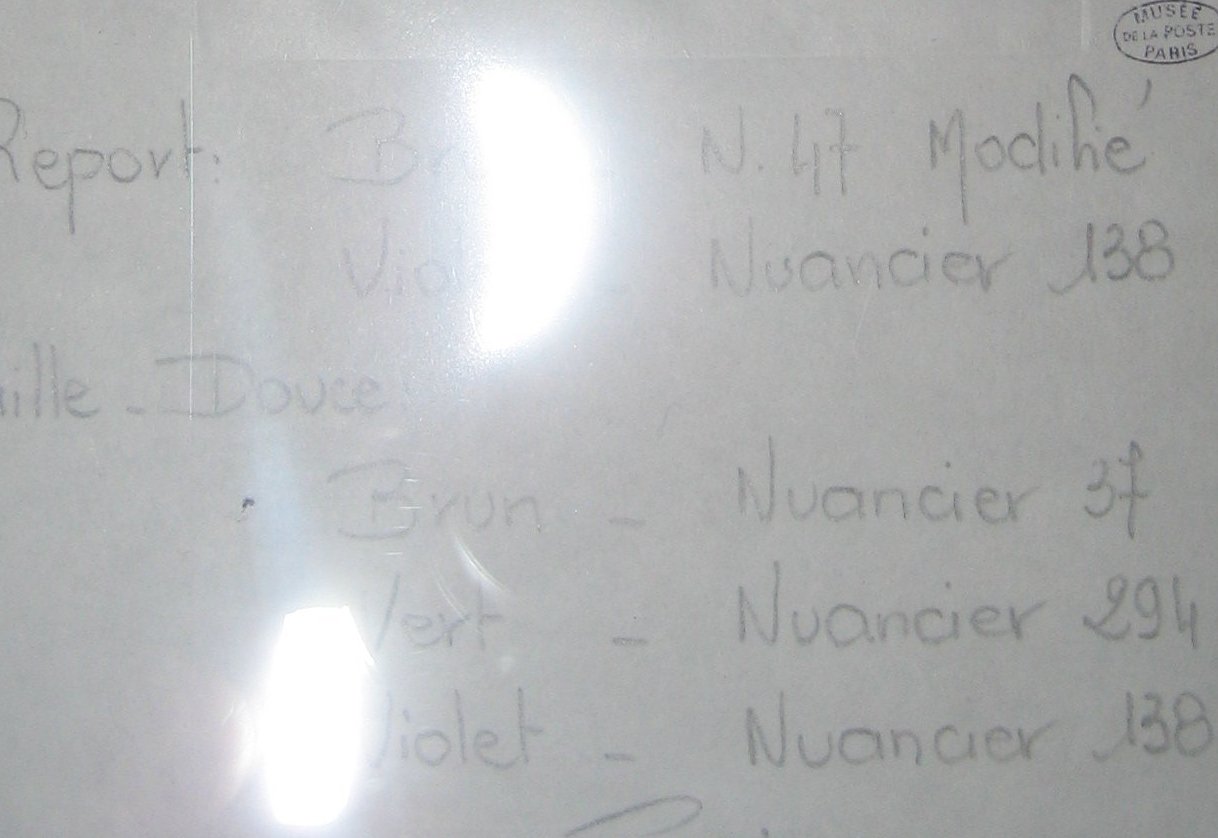 MUSÉE
DE LA POSTE
PARIS
Report: N. 47 Modifié
Nuancier 138
Douce
Brun - Nuancier 37
Vert - Nuancier 294
Violet - Nuancier 138